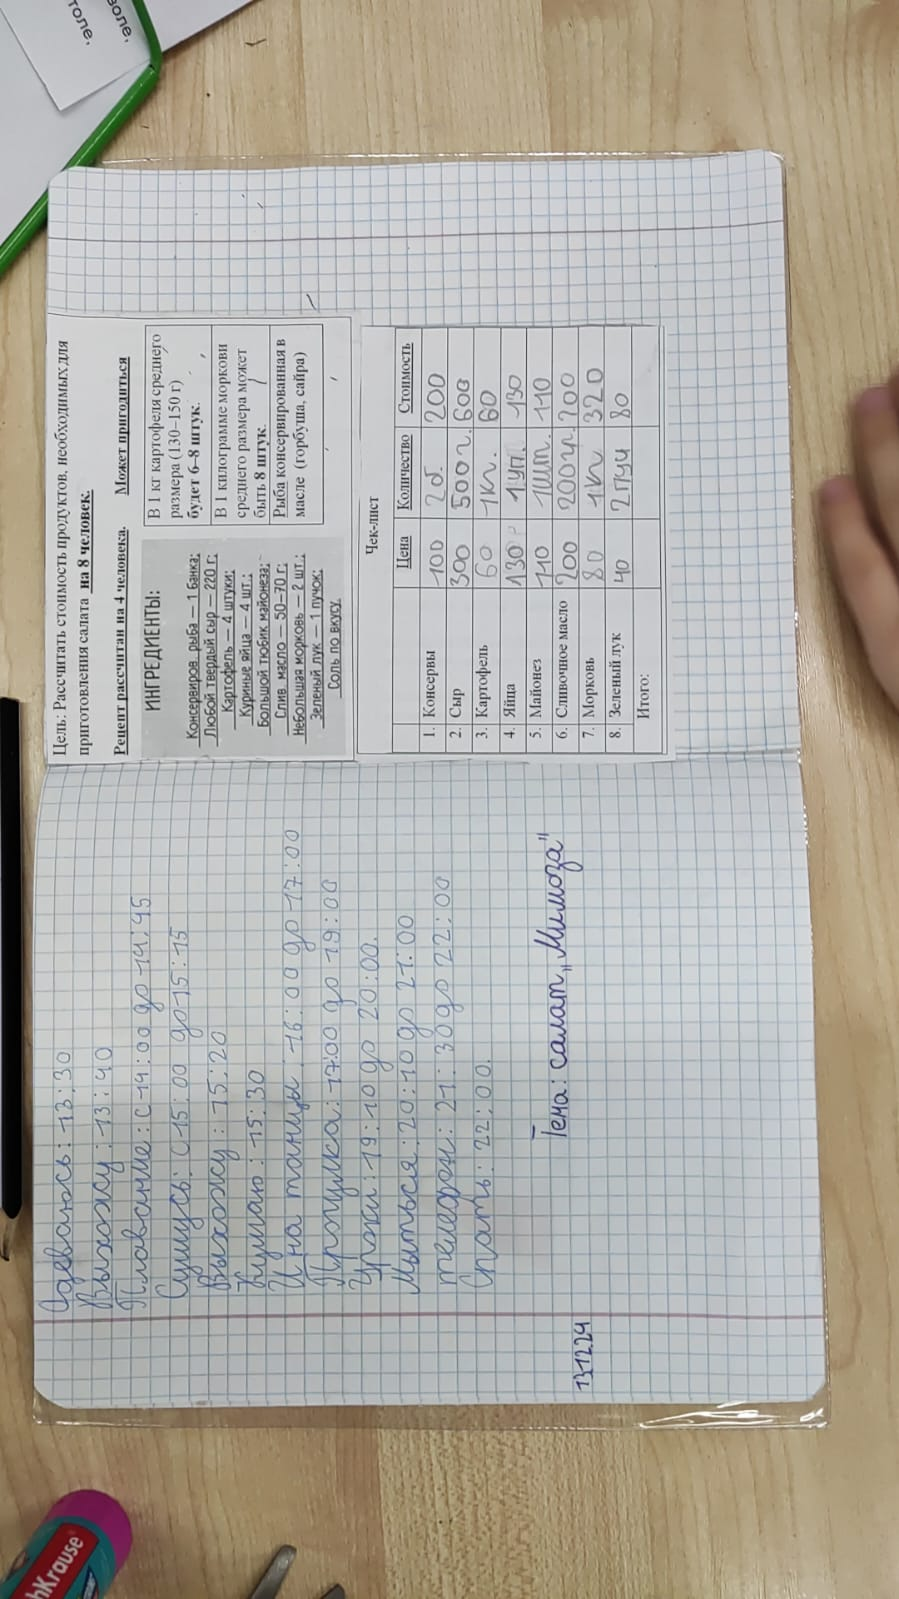 Одеваюсь: 13:30
Выхожу: 13:40
Плавание: с 14:00 до 14:45
Сушусь: с 15:00 до 15:15
Выхожу: 15:20
Кушаю: 15:30
И на танцы: 16:00 до 17:00
Прогулка: 17:00 до 19:00
Уроки: 19:10 до 20:00.
Мыться: 20:10 до 21:00
телефон: 21:30 до 22:00
Спать: 22:00.
Тема: салат „Мимоза"
13.12.24
Цель: Рассчитать стоимость продуктов, необходимых для
приготовления салата на 8 человек.
Рецепт рассчитан на 4 человека. Может пригодиться
ИНГРЕДИЕНТЫ:
Консервиров. рыба — 1 банка;
Любой твердый сыр — 220 г;
Картофель — 4 штуки;
Куриные яйца — 4 шт.;
Большой тюбик майонеза;
Слив. масло — 50–70 г;
Небольшая морковь — 2 шт.;
Зеленый лук — 1 пучок;
Соль по вкусу.
В 1 кг картофеля среднего
размера (130–150 г)
будет 6–8 штук.
В 1 килограмме моркови
среднего размера может
быть 8 штук.
Рыба консервированная в
масле (горбуша, сайра)
Чек-лист
Цена Количество Стоимость
1. Консервы 100 2б. 200
2. Сыр 300 500г. 600
3. Картофель 60 1к. 60
4. Яйца 130 1уп. 130
5. Майонез 110 1шт. 110
6. Сливочное масло 200 200гр. 200
7. Морковь 80 1к 320
8. Зеленый лук 40 2пуч 80
Итого:
воле,
толе,
hKrause®